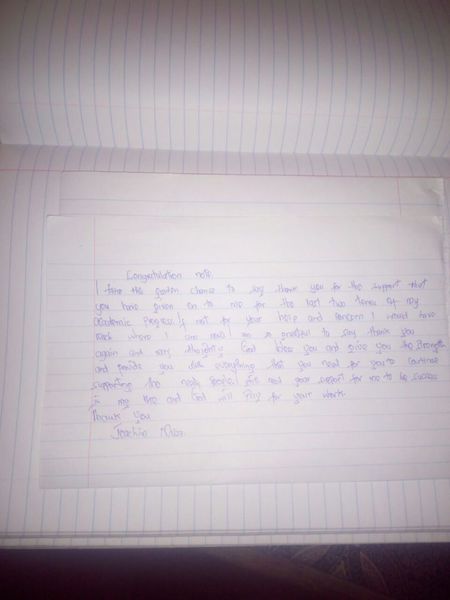 Congratulation note.
I take this golden chance to say thank you for the support that
you have given on to me for the last two terms of my
academic progress. If not for your help and concern I would have
where I am now am so grateful to say thank you
again and may almighty God bless you and give you the strength
and provide you with everything that you need for you to continue
supporting the needy people. still need your support for me to be success
in my and God will Pay for your work.
Thank you